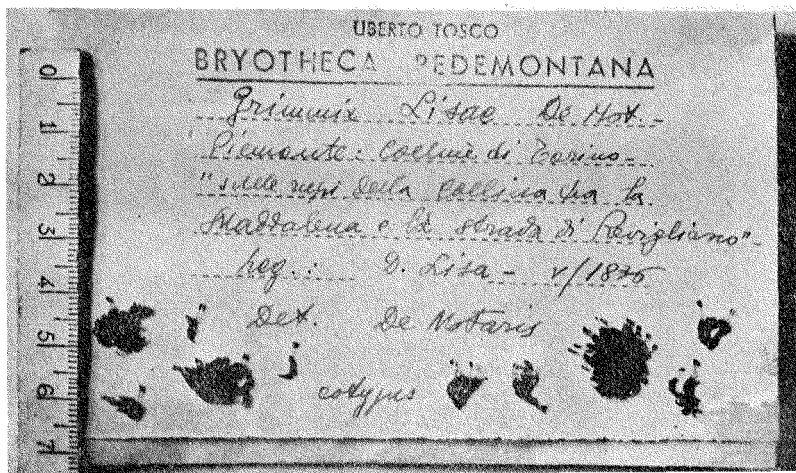 UBERTO TOSCO
BRYOTHECA PEDEMONTANA
Grimmia Lisae De Not -
Piemonte: Colline di Torino -
"sulle rupi della collina tra la
Maddalena e la strada di Revigliano" -
Leg.: D. Lisa - V/1835
Det. De Notaris
cotypus
0
1
2
3
4
5
6
7